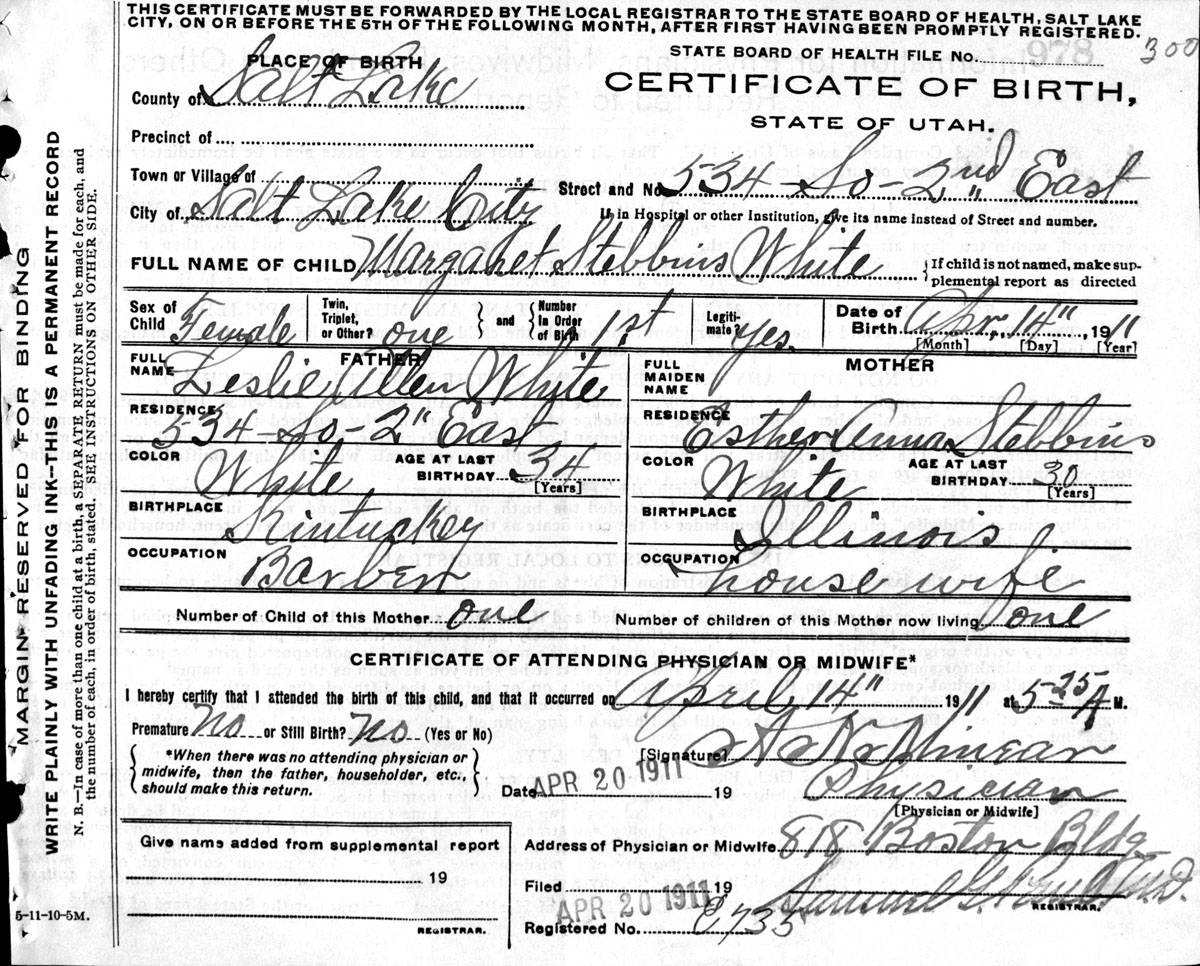 THIS CERTIFICATE MUST BE FORWARDED BY THE LOCAL REGISTRAR TO THE STATE BOARD OF HEALTH, SALT LAKE
CITY, ON OR BEFORE THE 5TH OF THE FOLLOWING MONTH, AFTER FIRST HAVING BEEN PROMPTLY REGISTERED.
300
STATE BOARD OF HEALTH FILE No. 978
PLACE OF BIRTH
CERTIFICATE OF BIRTH,
County of Salt Lake
STATE OF UTAH.
Precinct of
Town or Village of
Street and No. 534 - So - 2nd East
City of Salt Lake City
If in Hospital or other Institution, give its name instead of Street and number.
FULL NAME OF CHILD Margaret Stebbins White
{If child is not named, make sup-
plemental report as directed
Sex of Child Female
Twin, Triplet, or Other? one
} and {
Number In Order of Birth 1st
Legiti-mate? Yes.
Date of Birth Apr, 14", 1911
[Month] [Day] [Year]
FATHER
FULL NAME Leslie Allen White
RESIDENCE 534 - So, 2" East
COLOR White
AGE AT LAST BIRTHDAY 34
[Years]
BIRTHPLACE Kintuckey
OCCUPATION Barber
MOTHER
FULL MAIDEN NAME
RESIDENCE Esther Anna Stebbins
COLOR White
AGE AT LAST BIRTHDAY 30
[Years]
BIRTHPLACE Illinois
OCCUPATION housewife
Number of Child of this Mother one
Number of children of this Mother now living one
CERTIFICATE OF ATTENDING PHYSICIAN OR MIDWIFE*
I hereby certify that I attended the birth of this child, and that it occurred on April, 14" 1911 at 5-25 A M.
Premature No or Still Birth? No (Yes or No)
{ *When there was no attending physician or
midwife, then the father, householder, etc.,
should make this return. }
[Signature]
Date APR 20 1911 19
Physician
[Physician or Midwife]
Give name added from supplemental report
19
REGISTRAR.
Address of Physician or Midwife 818 Boston Bldg
Filed APR 20 1911 19
REGISTRAR.
Registered No.
5-11-10-5M.
MARGIN RESERVED FOR BINDING
WRITE PLAINLY WITH UNFADING INK—THIS IS A PERMANENT RECORD
N. B.—In case of more than one child at a birth, a SEPARATE RETURN must be made for each, and
the number of each, in order of birth, stated. SEE INSTRUCTIONS ON OTHER SIDE.